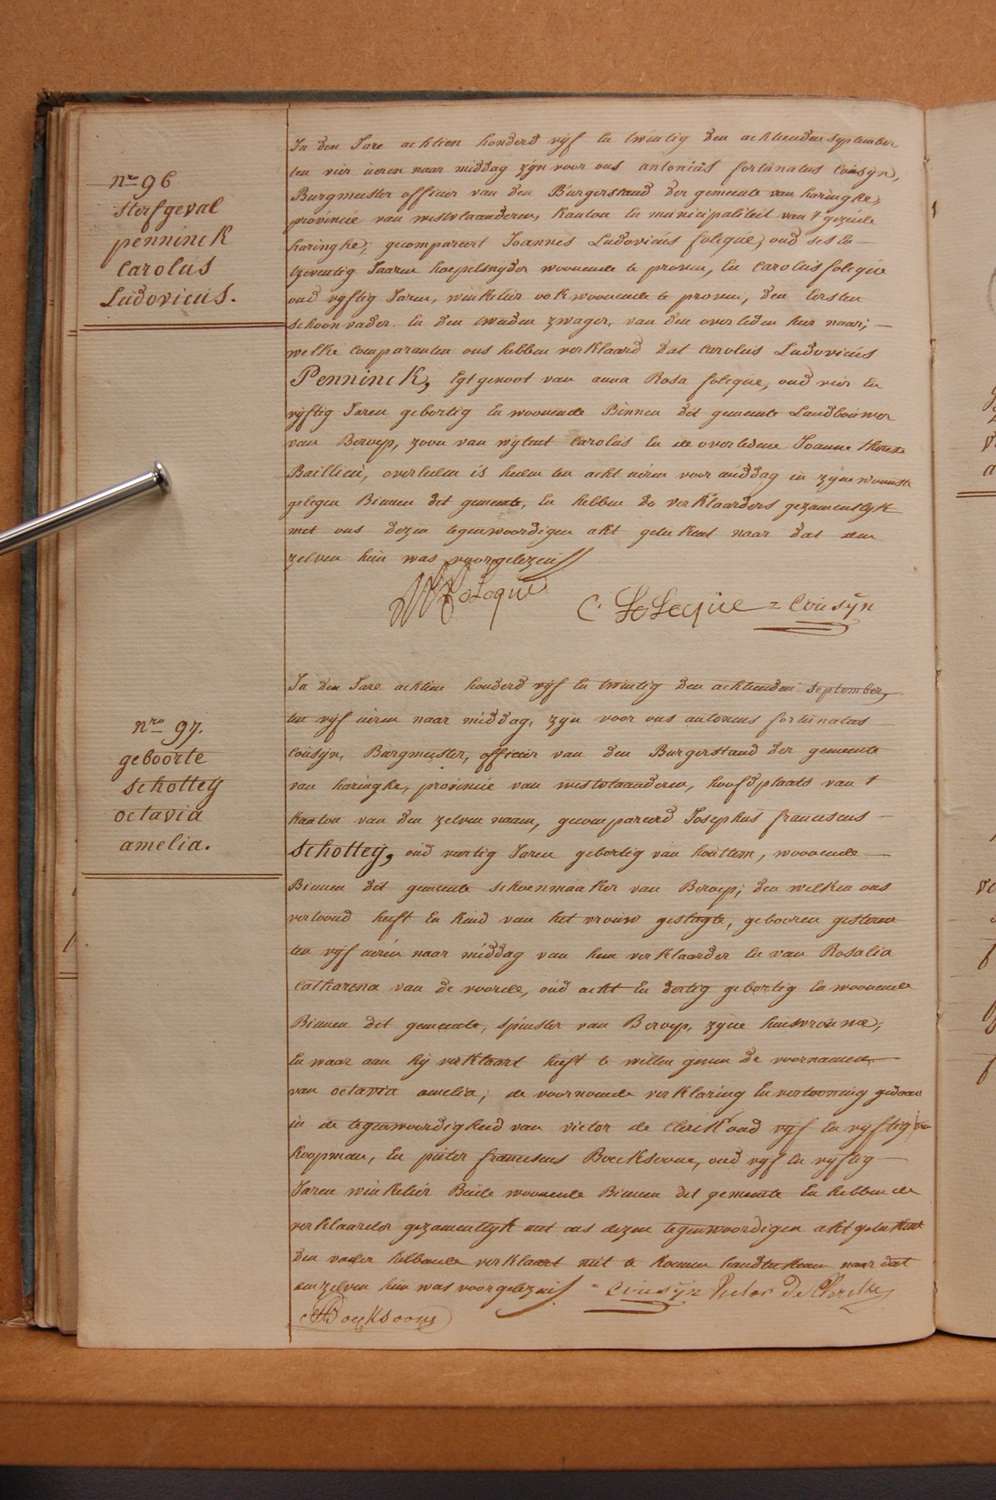 nro 96
sterfgeval
penninck
Carolus
Ludovicus.
In den Jare achtien honderd vijf en twintig den achtienden september
ten vier uren naar middag zijn voor ons antonius fortunatus Cousijn,
Burgmeester officier van den Burgerstaend der gemeente van haringhe,
provincie van westvlaanderen, kanton en municipaliteit van 't gezeide
haringhe, gecompareert Joannes Ludovicus folcque, oud sesen-
tzeventig Jaaren hoepelsnyder woonende te proven, en Carolus folcque
oud vyftig Jaren, winkelier ook woonende te proven, den eersten
schoonvader en den tweeden zwager, van den overleden hier naar; —
welke comparanten ons hebben verklaard dat Carolus Ludovicus
Penninck, Egtgenoot van anna Rosa folcque, oud vier en
vyftig Jaren geboortig en woonende Binnen det gemeente Landbouwer
van Beroep, zoon van wylent Carolus en de overledene Joanne
Baillieu, overleden is heden ten acht uren voor middag in zyne woonste
gelegen Binnen det gemeente, en hebben de verklaarders gezamentlyk
met ons dezen tegenwoordigen akt geteekent naar dat
zelven hun was voorgelezen
C. folcque = Cousijn
nro 97.
geboorte
schottey
octavia
amelia.
In den Jare achtien honderd vijf en twintig den achtienden september,
ten vijf uren naar middag, zyn voor ons antonius fortunatus
Cousijn, Burgmeester, officier van den Burgerstaend der gemeente
van haringhe, provincie van westvlaanderen, hoofdplaats van 't
kanton van den zelven naam, gecompareerd Josephus franciscus
Schottey, oud veertig Jaren geboortig van houttem, woonende —
Binnen det gemeente schoenmaaker van Beroep; den welken ons
vertoond heeft en kind van het vrouw geslagte, gebooren gisteren
ten vijf uren naar middag van hem verklaarder en van Rosalia
Catharena van de voorde, oud acht en dertig geboortig en woonende
Binnen det gemeente, spinster van Beroep, zyne huisvrouwe,
en waar aan hij verklaart heeft te willen geven de voornamen
van octavia amelia; de voornoemde verklaring en vertooning gedaan
in de tegenwoordigheid van victor de Clerck oud vijf en vyftig
koopman, en pieter franciscus Boecksoone, oud vyf en vyftig —
Jaren winkelier Beide woonende Binnen det gemeente en hebben de
verklaarders gezamentlyk met ons dezen tegenwoordigen akt geteekent
den vader hebbende verklaart niet te konnen handteekenen naar dat
den zelven hun was voorgelezen = Cousijn Victor De Clerck
Boecksoone